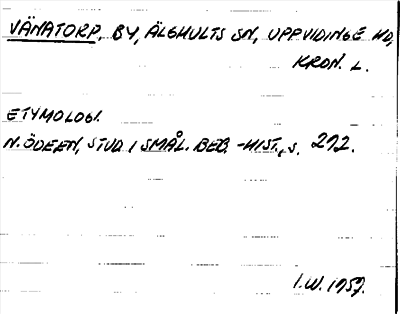 VÄNATORP, BY, ÄLGHULTS SN, UPPVIDINGE HD,
KRON. L.
ETYMOLOGI.
N. ÖDEEN, STUD. I SMÅL. BEB. -HIST., S. 272.
I.W. 1957.